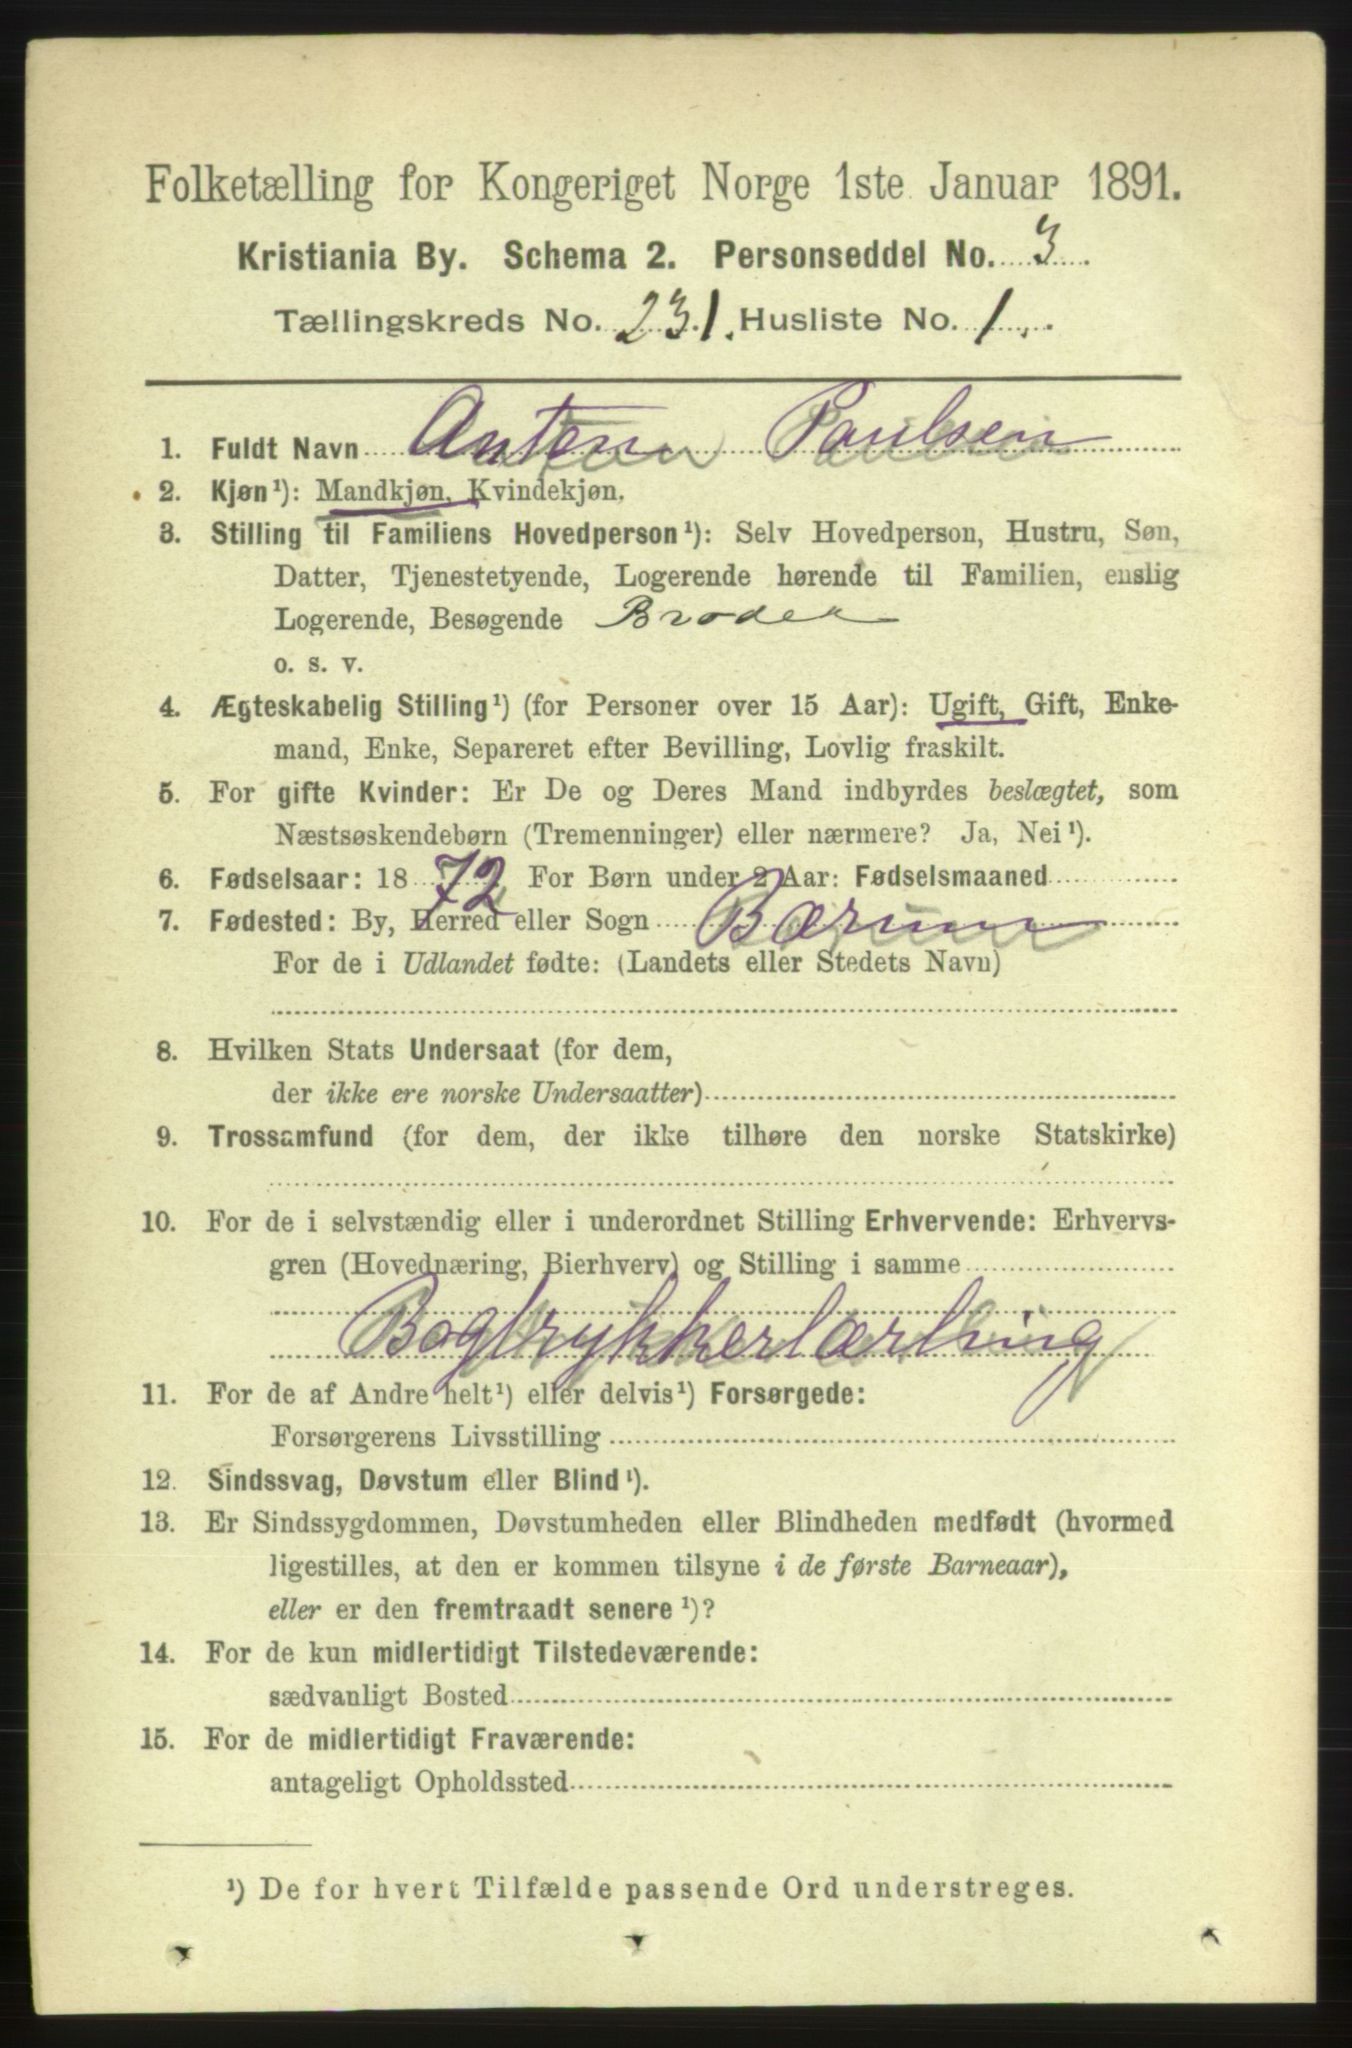 Folketælling for Kongeriget Norge 1ste Januar 1891.
Kristiania By. Schema 2. Personseddel No. 3
Tællingskreds No. 231. Husliste No. 1.
1. Fuldt Navn Anton Paulsen
2. Kjøn¹): Mandkjøn, Kvindekjøn.
3. Stilling til Familiens Hovedperson¹): Selv Hovedperson, Hustru, Søn,
Datter, Tjenestetyende, Logerende hørende til Familien, enslig
Logerende, Besøgende Broder
o. s. v.
4. Ægteskabelig Stilling¹) (for Personer over 15 Aar): Ugift, Gift, Enke-
mand, Enke, Separeret efter Bevilling, Lovlig fraskilt.
5. For gifte Kvinder: Er De og Deres Mand indbyrdes beslægtet, som
Næstsøskendebørn (Tremenninger) eller nærmere? Ja, Nei¹).
6. Fødselsaar: 1872 For Børn under 2 Aar: Fødselsmaaned
7. Fødested: By, Herred eller Sogn Bærum
For de i Udlandet fødte: (Landets eller Stedets Navn)
8. Hvilken Stats Undersaat (for dem,
der ikke ere norske Undersaatter)
9. Trossamfund (for dem, der ikke tilhøre den norske Statskirke)
10. For de i selvstændig eller i underordnet Stilling Erhvervende: Erhvervs-
gren (Hovednæring, Bierhverv) og Stilling i samme
Bogtrykkerlærling
11. For de af Andre helt¹) eller delvis¹) Forsørgede:
Forsørgerens Livsstilling
12. Sindssvag, Døvstum eller Blind¹).
13. Er Sindssygdommen, Døvstumheden eller Blindheden medfødt (hvormed
ligestilles, at den er kommen tilsyne i de første Barneaar),
eller er den fremtraadt senere¹)?
14. For de kun midlertidigt Tilstedeværende:
sædvanligt Bosted
15. For de midlertidigt Fraværende:
antageligt Opholdssted
¹) De for hvert Tilfælde passende Ord understreges.